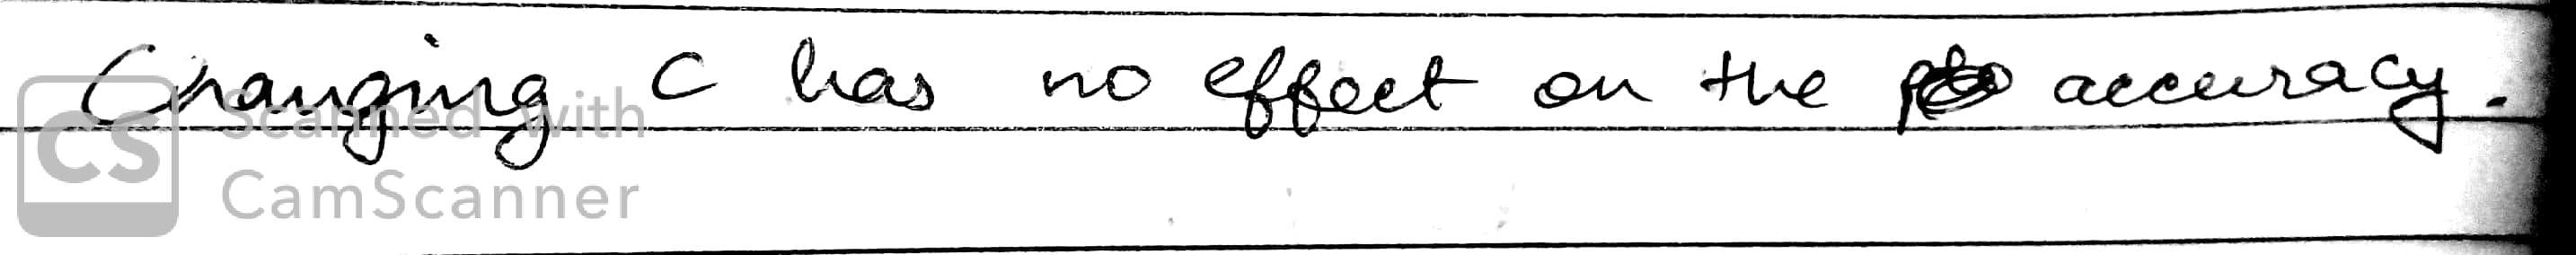 Changing C has no effect on the accuracy.
CS Scanned with
CamScanner